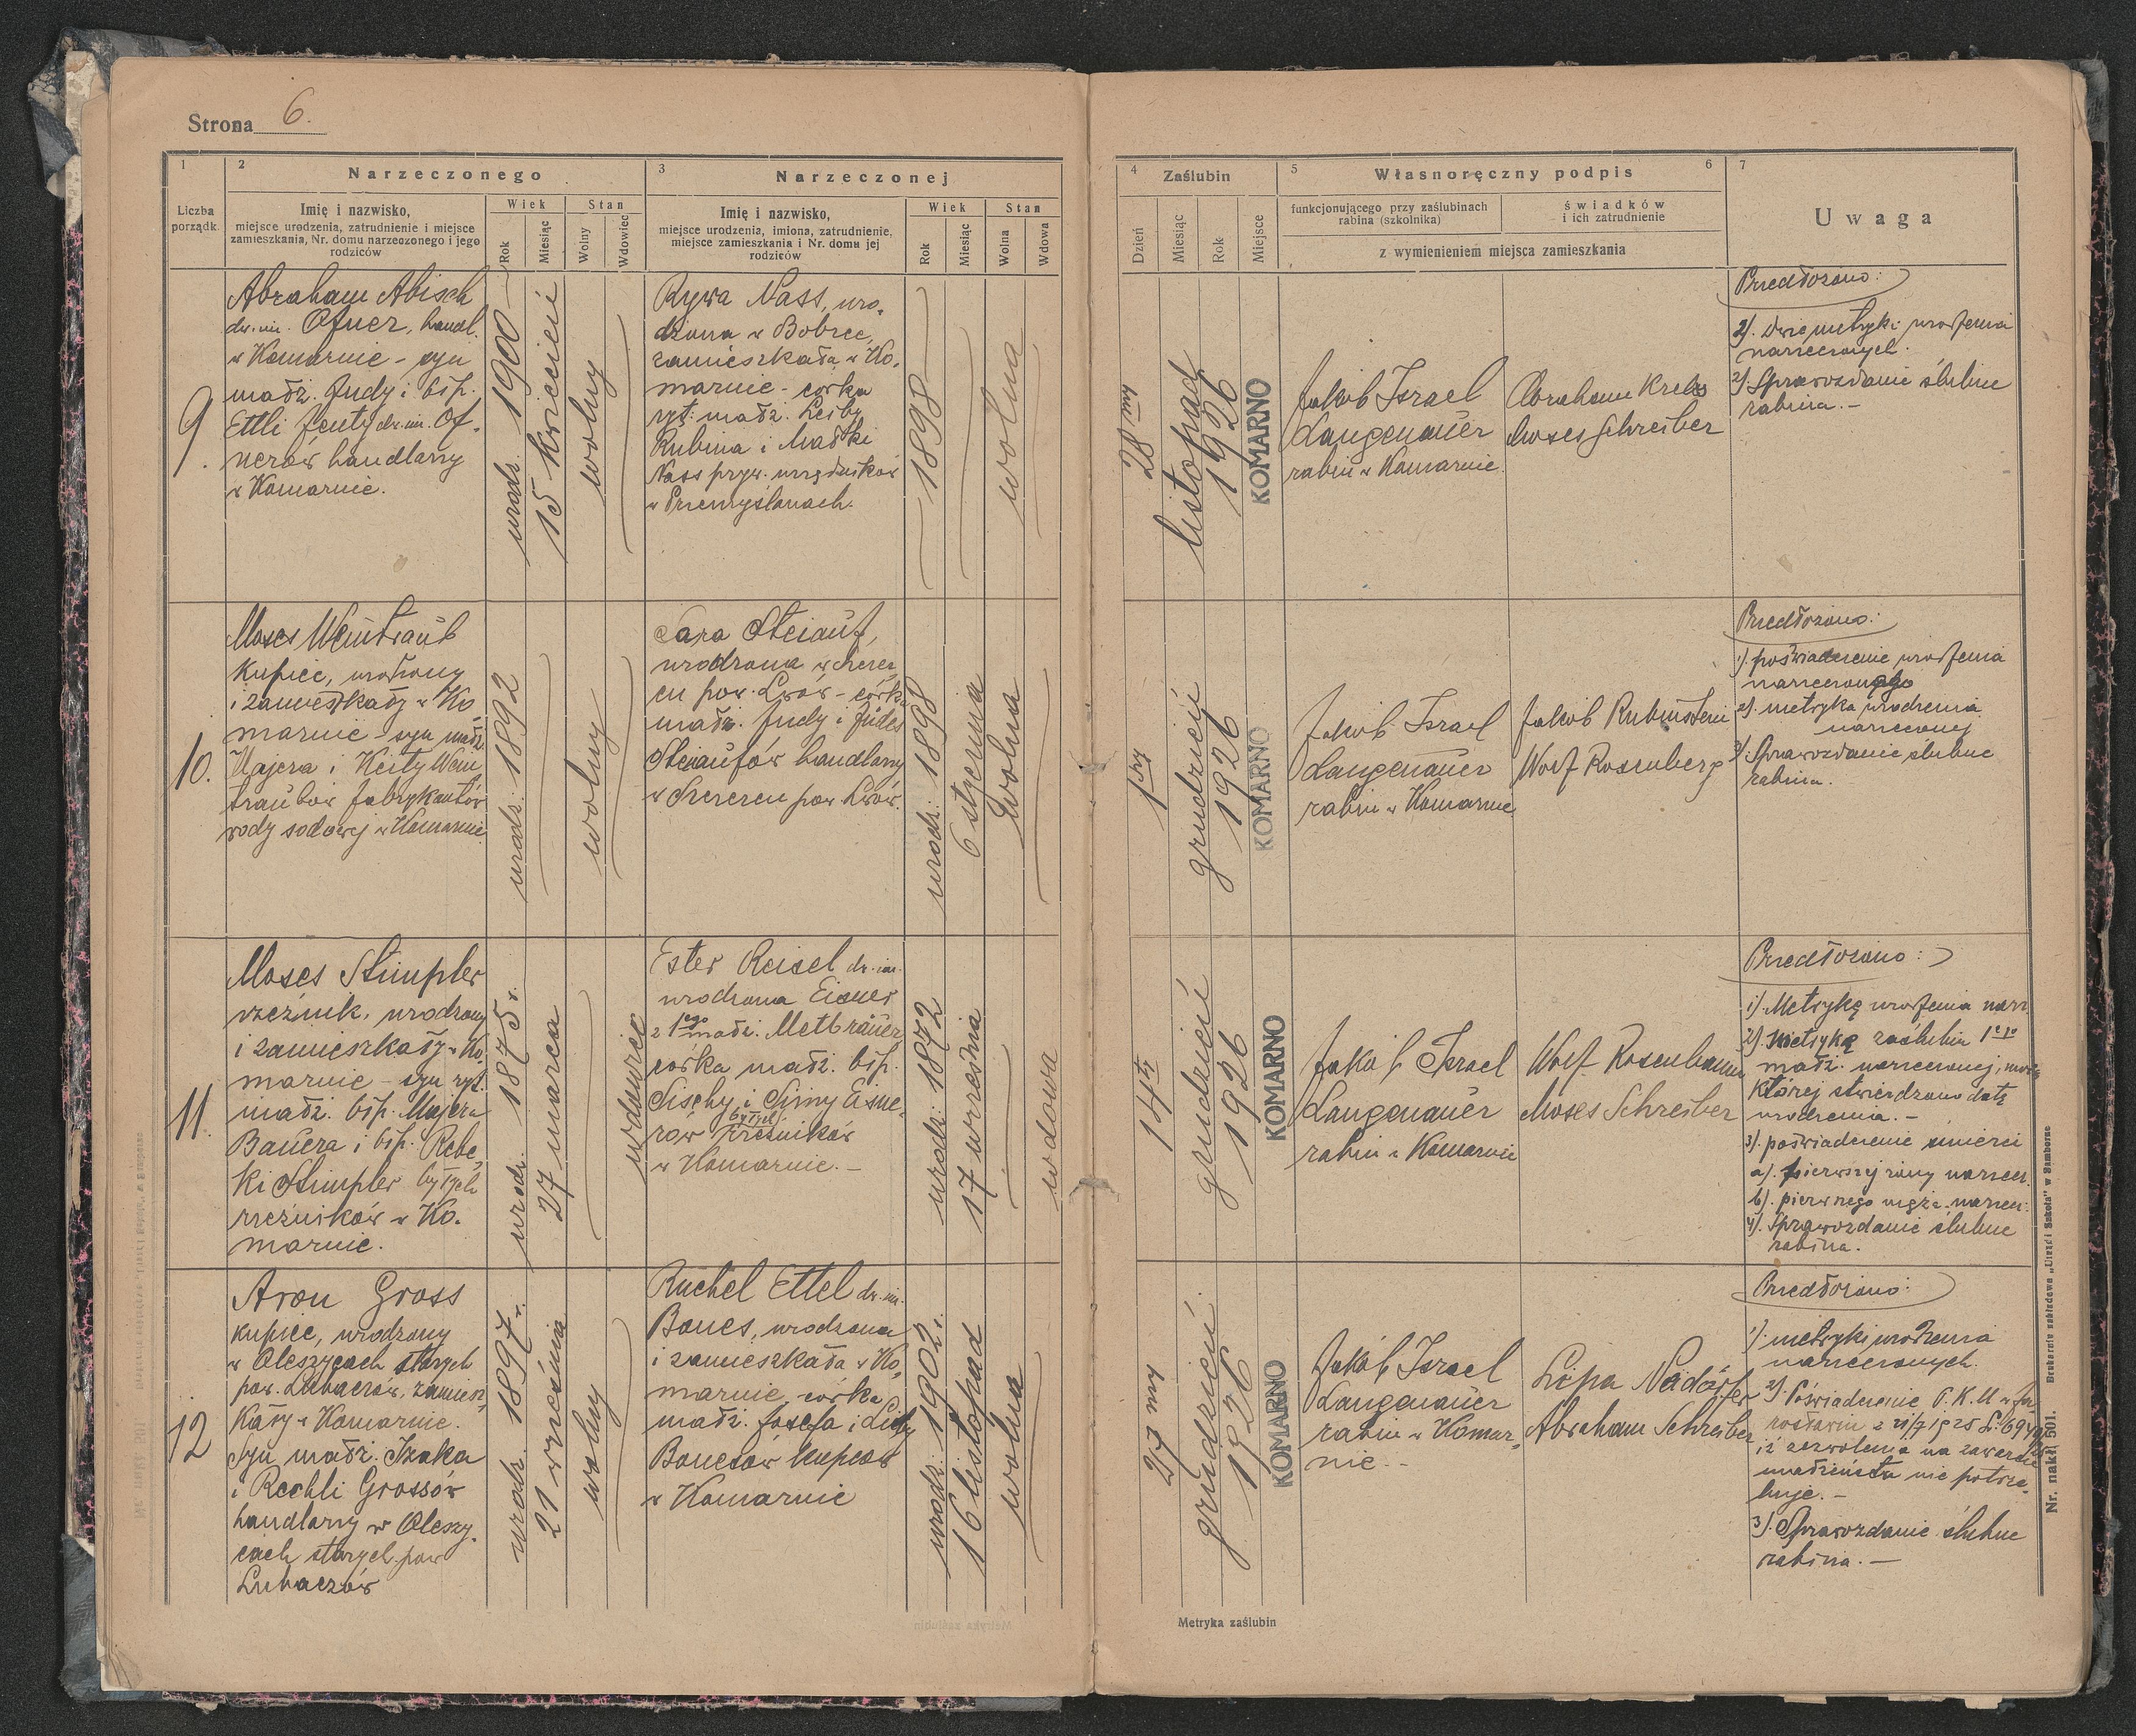 Strona 6.
1
2
Narzeczonego
3
Narzeczonej
Liczba
porządk.
Imię i nazwisko,
miejsce urodzenia, zatrudnienie i miejsce
zamieszkania, Nr. domu narzeczonego i jego
rodziców
Wiek
Stan
Rok
Miesiąc
Wolny
Wdowiec
Imię i nazwisko,
miejsce urodzenia, imiona, zatrudnienie,
miejsce zamieszkania i Nr. domu jej
rodziców
Wiek
Stan
Rok
Miesiąc
Wolna
Wdowa
4
Zaślubin
5
Własnoręczny podpis
6
7
Dzień
Miesiąc
Rok
Miejsce
funkcjonującego przy zaślubinach
rabina (szkolnika)
świadków
i ich zatrudnienie
z wymienieniem miejsca zamieszkania
Uwaga
9.
Abraham Abisch
dw. im. Ofner, handl.
w Komarnie - syn
małż. Judy i błp.
Ettli Jenty dw. im. Of-
nerów handlarzy
w Komarnie.
urodz. 1900
15 kwiecień
wolny
Rywa Nass, uro-
dzona w Bobrce,
zamieszkała w Ko-
marnie - córka
ryt. małż. Leiby
Rubina i Małki
Nass pryw. urzędników
w Przemyślanach.
1898
wolna
28my
listopad
1926
KOMARNO
Jakób Israel
Langenauer
rabin w Komarnie.
Abraham Krebs
Moses Schreiber
Przedłożono:
1). dwie metryki urodzenia
narzeczonych.
2). Sprawozdanie ślubne
rabina.-
10.
Moses Weintraub
kupiec, urodzony
i zamieszkały w Ko-
marnie - syn małż.
Majera i Henty Wein
traubów fabrykantów
wody sodowej w Komarnie
urodz. 1892
wolny
Sara Steiauf,
urodzona w Szczer
cu pow. Lwów - córka
małż. Judy i Judes
Steiaufów handlarzy
w Szczercu pow. Lwów.
urodz. 1898
6 stycznia
wolna
1szy
grudzień
1926
KOMARNO
Jakób Israel
Langenauer
rabin w Komarnie
Jakób Rubinstein
Wolf Rosenberg
Przedłożono:
1). poświadczenie urodzenia
narzeczonego
2). metryka urodzenia
narzeczonej
3). Sprawozdanie ślubne
rabina.
11.
Moses Stimpler
rzeźnik, urodzony
i zamieszkały w Ko-
marnie - syn ryt.
małż. błp. Majera
Bauera i błp. Rebe-
ki Stimpler byłych
rzeźników w Ko-
marnie.
urodz. 1875 r.
27 marca
wdowiec
Ester Reisel dw. im.
urodzona Eisner
z 1ego małż. Metbrauer
córka małż. błp.
Sischy i Simy Eisne-
rów byłych rzeźników
w Komarnie.-
urodz. 1872
17 września
wdowa
14ty
grudzień
1926
KOMARNO
Jakób Israel
Langenauer
rabin w Komarnie
Wolf Rosenbaum
Moses Schreiber
Przedłożono:
1). Metrykę urodzenia narz.
2). Metrykę zaślubin 1ego
małż. narzeczonej,
której stwierdzono datę
urodzenia.-
3). poświadczenie śmierci
a). pierwszej żony narzecz.
b). pierwszego męża narzecz.
4). Sprawozdanie ślubne
rabina.
12
Aron Gross
kupiec, urodzony
w Oleszycach starych
pow. Lubaczów, zamiesz-
kały w Komarnie.
syn małż. Izaka
i Rechli Grossów
handlarzy w Oleszy-
cach starych pow
Lubaczów
urodz. 1897 r.
21 września
wolny
Ruchel Ettel dw. im.
Bones, urodzona
i zamieszkała w Ko-
marnie, córka
małż. Josefa i
Bonesów kupców
w Komarnie
urodz. 1902 r.
16 listopad
wolna
27my
grudzień
1926
KOMARNO
Jakób Israel
Langenauer
rabin w Komar-
nie.-
Lipa Nadörfer
Abraham Schreiber
Przedłożono:
1). metryki urodzenia
narzeczonych.
2). Poświadczenie P. K. U. w Ja
rosławiu z
iż zezwolenia na zawarcie
małżeństwa nie potrze-
buje.-
3). Sprawozdanie ślubne
rabina.-
Metryka zaślubin
Nr. nakł. 501.
Drukarnia nakładowa „Urząd i Szkoła" w Samborze